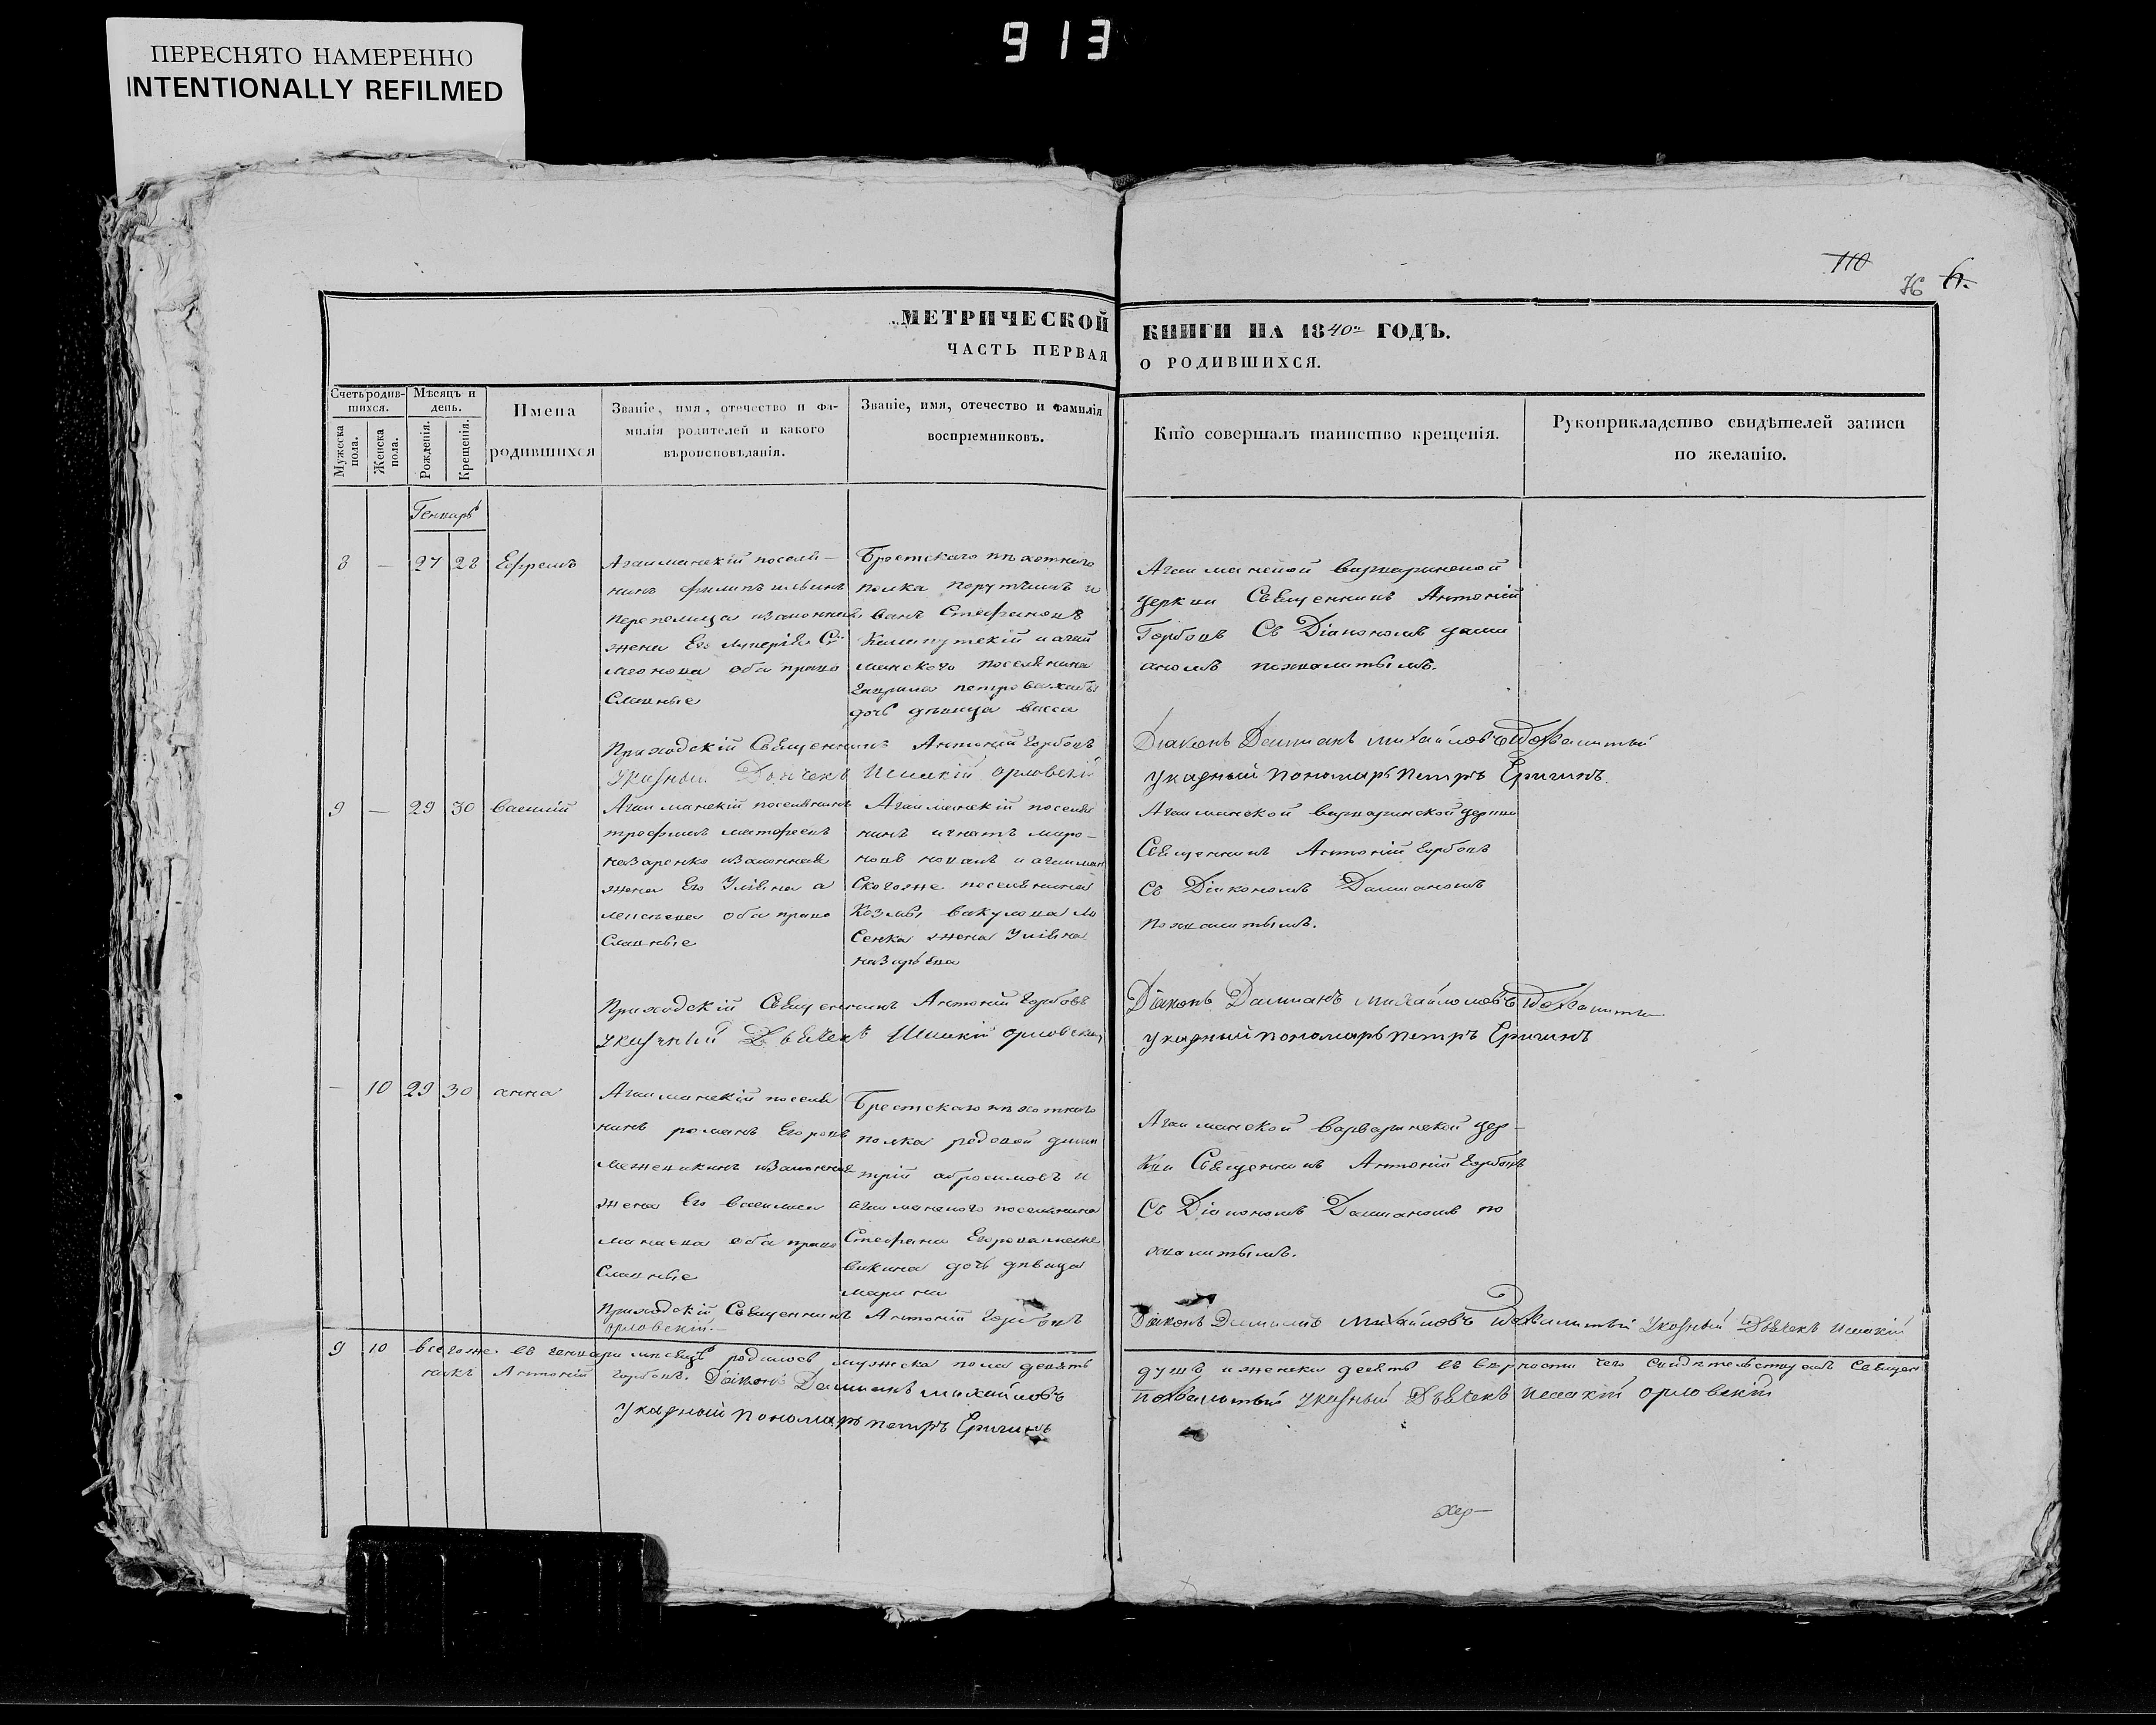 913
ПЕРЕСНЯТО НАМЕРЕННО
INTENTIONALLY REFILMED
110
76
МЕТРИЧЕСКОЙ КНИГИ НА 1840й ГОДЪ.
ЧАСТЬ ПЕРВАЯ О РОДИВШИХСЯ.
Счетъ родив-
шихся.
Мужеска пола.
Женска пола.
Мѣсяцъ и
день.
Рожденія.
Крещенія.
Имена
родившихся
Званіе, имя, отечество и фа-
милія родителей и какого
вѣроисповѣданія.
Званіе, имя, отечество и фамилія
воспріемниковъ.
Кто совершалъ таинство крещенія.
Рукоприкладство свидѣтелей записи
по желанію.
Генварь
8 — 27 28 Ефремъ
Агаиманскій поселя-
нинъ филипъ ильинъ
Перепелица изаконная
жена Его
оба право
Славные
Брестскаго пѣхотнаго
полка
ванъ Стефановъ
иагаи
манскаго поселянина
гаврила петрова
дочь дѣвица васса
Агаиманской варваринской
церкви Священникъ Антоній
Горбовъ Съ Діакономъ дами
аномъ похвалитымъ.
Приходскій Священникъ Антоній Горбовъ
указный Дьячекъ Исакій орловскій
Діаконъ Даміанъ михайловъ Похвалитый
указный пономарь петръ Еригинъ
9 — 29 30 василій
Агаиманскій поселянинъ
трофимъ матфеевъ
назаренко изаконная
жена Его Уліяна а
оба право
Славные
Агаиманскій поселя
нинъ игнатъ миро-
новъ и агаиман
Скогоже поселянина
Козмы вакулова ли
Сенка жена Уліяна
назарьева
Агаиманской варваринской церкви
Священникъ Антоній Горбовъ
Съ Діакономъ Даміаномъ
похвалитымъ.
Приходскій Священникъ Антоній Горбовъ
указный Дьячекъ Исакій орловскій
Діаконъ Даміанъ михайловъ Похвалитый
указный пономарь петръ Еригинъ
— 10 29 30 анна
Агаиманскій поселя
нинъ романъ Егоровъ
изаконная
жена Его василиса
оба право
Славные
Брестскаго пѣхотнаго
полка редовой дими
трій абросимовъ и
агаиманскаго поселянина
Стефана Егорова меже
викина дочь дѣвица
марина
Агаиманской варваринской цер-
кви Священникъ Антоній Горбовъ
Съ Діакономъ Даміаномъ по
хвалитымъ.
Приходскій Священникъ Антоній Горбовъ
орловскій.
Діаконъ Даміанъ Михайловъ Похвалитый Указный Дьячекъ Исакій
9 10 всегоже въ генварѣ мѣсяцѣ родилось мужска пола девять душъ иженска десять въ вѣрности чего свидѣтельствуемъ Священ
никъ Антоній Горбовъ. Діаконъ Даміанъ михайловъ похвалитый указный Дьячекъ Исакій орловскій
Указный пономарь петръ Еригинъ
Хер—